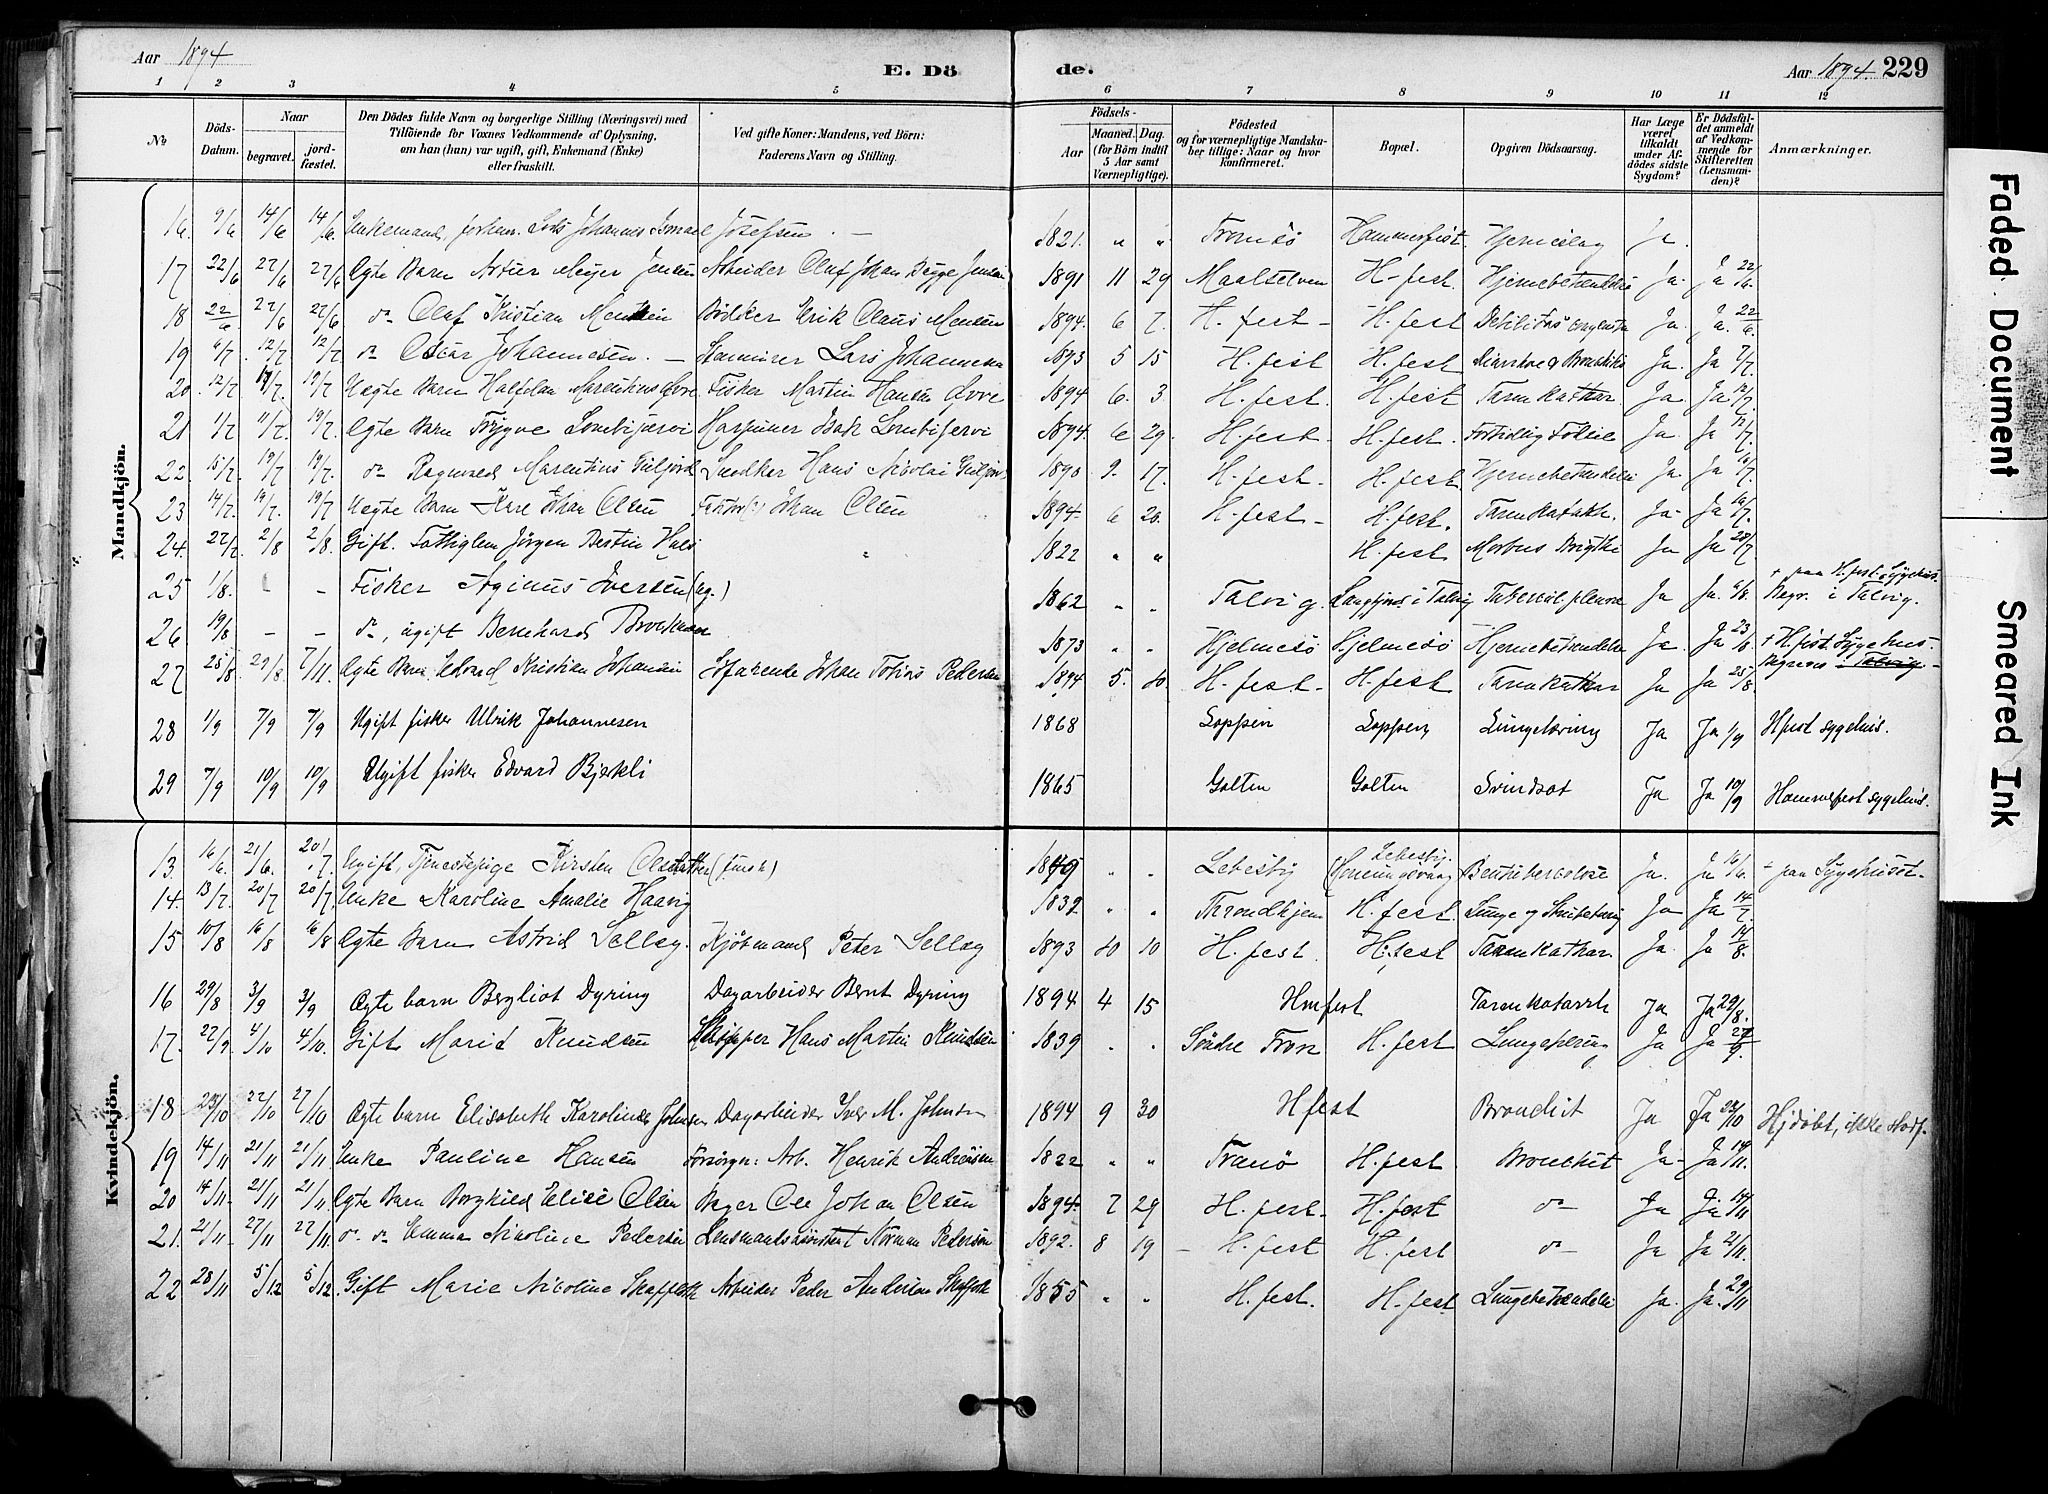 Aar 1894
E. Dö
de.
Aar 1894. 229
1 2 3 4 5 6 7 8 9 10 11 12
No
Döds-Datum.
Naar
begravet.
jord-fæstet.
Den Dödes fulde Navn og borgerlige Stilling (Næringsvei) med
Tilföiende for Voxnes Vedkommende af Oplysning,
om han (hun) var ugift, gift, Enkemand (Enke)
eller fraskilt.
Ved gifte Koner: Mandens, ved Börn:
Faderens Navn og Stilling.
Födsels-
Aar
Maaned. Dag.
(for Börn indtil
5 Aar samt
Værnepligtige).
Födested
og for værnepligtige Mandska-
ber tillige: Naar og hvor
konfirmeret.
Bopæl.
Opgiven Dödsaarsag.
Har Læge
været
tilkaldt
under Af-
dödes sidste
Sygdom?
Er Dödsfal-
det anmeldt
af Vedkom-
mende for
Skifteretten
(Lensman-
den)?
Anmærkninger.
Mandkjön.
16 9/6 14/6 14/6 Enkemand, Johannes Josefsen. 1821. " " Tromsö Hammerfest Hjerneslag Ja.
17 22/6 27/6 27/6 Ægte Barn Artur Meyer Jensen Arbeider Olaf Johan Jensen 1891 11 29 Maalselven H-fest. Hjernebetændelse Ja. Ja 22/6.
18 22/6 27/6 27/6 do Olaf Kristian Bödker Erik Claus 1894. 6 7. H. fest - H. fest Debilitas Ja. Ja. 22/6
19 6/7. 12/7. 12/7. do Oscar Johannesen. - Lars Johannesen 1893 5 15 H. fest H. fest Bronkitis Ja. Ja 7/7.
20. 12/7. 19/7. 19/7. Uægte Barn Halfdan Marentius Fisker Martin Hansen 1894 6. 3. H. fest. H. fest Tarmkatar. Ja Ja 12/7.
21 1/7 11/7. 19/7. Ægte Barn Trygve Harpuner Isak 1894. 6 29. H. fest. H. fest. Fortidlig Ja. Ja 12/7.
22. 15/7. 19/7 19/7. do Ragnvald Marentius Hans Nicolai 1890 9. 17. H. fest. H. fest. Hjernebetændelse Ja. Ja 16/7.
23 14/7. 19/7. 19/7 Uægte Barn Kare Johan Olsen Fisker Johan Olsen 1894. 6 26. H. fest - H. fest. Tarmkatarh. Ja. Ja 16/7.
24. 27/7. 2/8 2/8. Gift. Fattiglem Jörgen Hals " 1822 " " H. fest Morbus Brigthi Ja Ja 28/7
25 1/8. - - Fisker Aginus Iversen (ug.) 1862 " . Talvig. Langfjord i Talvig Tubercul. pleura Ja Ja. 6/8. + paa H.fest Sygehus. Begr. i Talvig.
26 19/8 - - do, ugift Bernhard 1873 " . Hjelmesö Hjelmesö Hjernebetændelse Ja. Ja 23/8. + H.fest Sygehus. i Talvig
27 25/8. 29/8 7/11. Ægte Barn Edvard Kristian Johansen Johan Tobias Pedersen 1894 5. 10. H. fest. H. fest. Tarmkatar Ja Ja 25/8.
28 1/9 7/9 7/9 Ugift fisker Ulrik Johannesen 1868 Loppen Loppen Lungetæring Ja Ja 1/9 Hfest sygehus.
29 7/9 10/9 10/9 Ugift fisker Edvard Bjerkli 1865 Golten Golten Svindsot Ja Ja 10/9 Hammerfest sygehus.
Kvindekjön.
13. 16/6. 21/6. 20/7. Ugift, Tjenestepige Kirsten Olsdatter 1849 " . Lebesby Lebesby. (Honningsvaag Ja. Ja 16/6. + paa Sygehuset.
14. 13/7. 20/7 20/7. Enke Karoline Amalie Haavig 1832 " . Throndhjem H. fest. Lunge og Ja Ja 14/7.
15 10/8 16/8 16/8 Ægte Barn Astrid Selläg. Kjöbmand Peter Selläg 1893 10 10 H. fest. H. fest Tarmkathar Ja. Ja 14/8.
16 29/8 3/9 3/9 Ægte barn Bergliot Dyring Dagarbeider Bernt Dyring 1894 4 15 Hmfest Tarmkatarrh Ja Ja 29/8.
17. 27/9. 4/10 4/10. Gift Marie Knudsen Skipper Hans Martin Knudsen 1839 . . Söndre Fron H. fest Ja Ja 27/9.
18 23/10 27/10 27/10 Ægte barn Elisabeth Karoline Johnsen Dagarbeider Iver M. Johnsen 1894 9 30 Hfest Bronchit Ja Ja 23/10 Hjdöbt, ikke stadf.
19 14/11 21/11 21/11 Enke Pauline Hansen Forsörger: Arb. Henrik Andreasen 1822 " " Tranö H. fest. Bronchit Ja - Ja 14/11.
20 14/11. 21/11 21/11 Ægte Barn Borghild Elise Olsen Bager Ole Johan Olsen 1894. 7 29 H. fest. H. fest do Ja Ja. 14/11
21. 21/11. 27/11 27/11. do do Emma Nicoline Pedersen Lensmandsassistent Norman Pedersen 1892. 8 19 - H. fest H. fest do Ja Ja 21/11.
22 28/11 5/12 5/12. Gift Marie Nicoline Arbeider Peder Andersen 1855 " . H. fest. H. fest Lungebetændelse Ja. Ja. 29/11
Faded Document
Smeared Ink